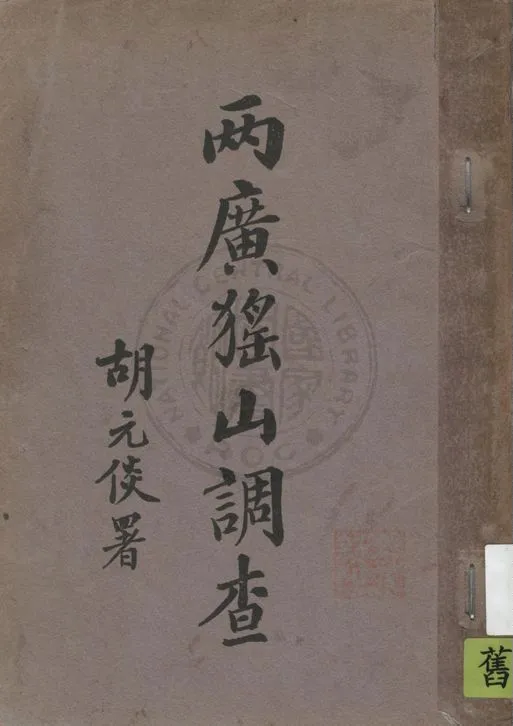 两廣猺山調查
胡元倓署
NATIONAL CENTRAL LIBRARY
ROC
舊